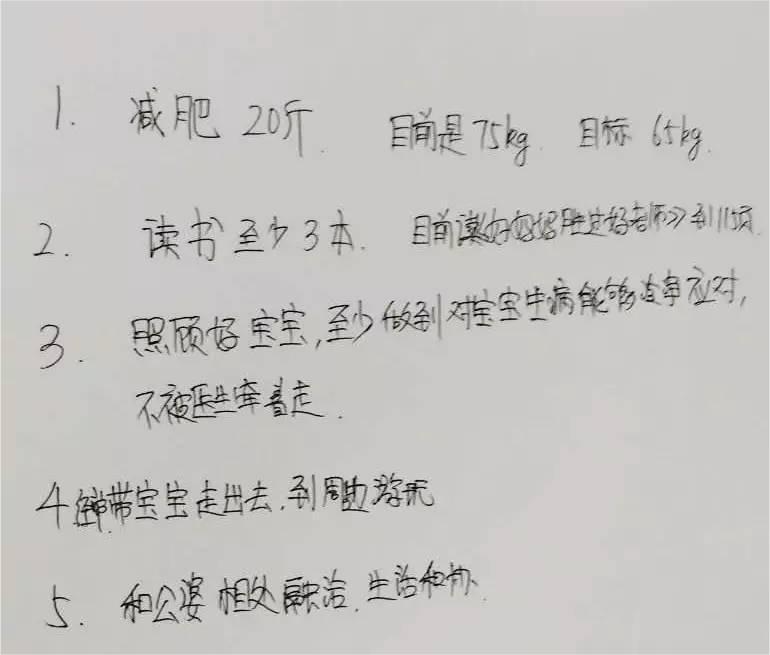 1. 减肥 20斤. 目前是75kg. 目标 65kg.
2. 读书至少3本. 目前读《好妈妈胜过好老师》到115页.
3. 照顾好宝宝,至少做到对宝宝生病能够冷静应对,
不被医生牵着走.
4 带宝宝走出去.到周边游玩
5. 和公婆相处融洽.生活和协.